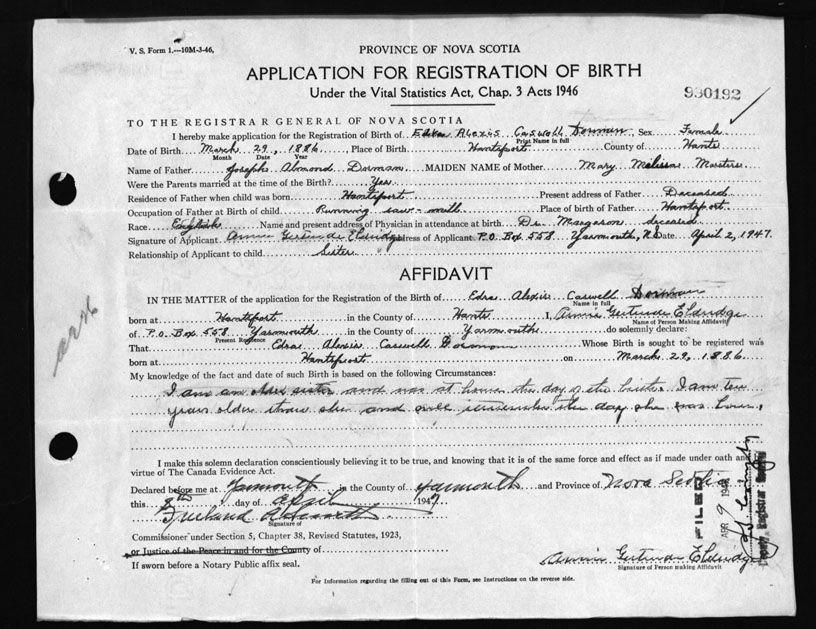 V. S. Form 1.—10M-3-46,
PROVINCE OF NOVA SCOTIA
APPLICATION FOR REGISTRATION OF BIRTH
Under the Vital Statistics Act, Chap. 3 Acts 1946
930192
TO THE REGISTRAR GENERAL OF NOVA SCOTIA
I hereby make application for the Registration of Birth of Edra Alexis Caswell Dorman, Sex Female
Print Name in full
Date of Birth March 29, 1886 Place of Birth Hantsport County of Hants
Month Date Year
Name of Father Joseph Almond Dorman MAIDEN NAME of Mother Mary Melissa Masters
Were the Parents married at the time of the Birth? Yes
Residence of Father when child was born Hantsport Present address of Father Deceased
Occupation of Father at Birth of child Running saw-mill Place of Birth of Father Hantsport
Race English Name and present address of Physician in attendance at birth Dr. Margeson deceased
Signature of Applicant Annie Gertrude Eldridge Address of Applicant P.O. Box 558 Yarmouth, N.S. Date April 2, 1947.
Relationship of Applicant to child Sister
AFFIDAVIT
IN THE MATTER of the application for the Registration of the Birth of Edra Alexis Caswell Dorman
Name in full
born at Hantsport in the County of Hants I, Annie Gertrude Eldridge
Name of Person Making Affidavit
of P.O. Box 558 Yarmouth in the County of Yarmouth do solemnly declare:
Present Residence
That Edra Alexis Caswell Dorman Whose Birth is sought to be registered was
born at Hantsport on March 29, 1886
My knowledge of the fact and date of such Birth is based on the following Circumstances:
I am an older sister and was at home the day of the birth. I am ten
years older than she and well remember the day she was born.
I make this solemn declaration conscientiously believing it to be true, and knowing that it is of the same force and effect as if made under oath and
virtue of The Canada Evidence Act.
Declared before me at Yarmouth in the County of Yarmouth and Province of Nova Scotia
this 8th day of April 1947
Signature of
Commissioner under Section 5, Chapter 38, Revised Statutes, 1923,
or Justice of the Peace in and for the County of
If sworn before a Notary Public affix seal.
Annie Gertrude Eldridge
Signature of Person making Affidavit
For Information regarding the filling out of this Form, see Instructions on the reverse side.
FILED
APR 9 1947
Deputy Registrar General